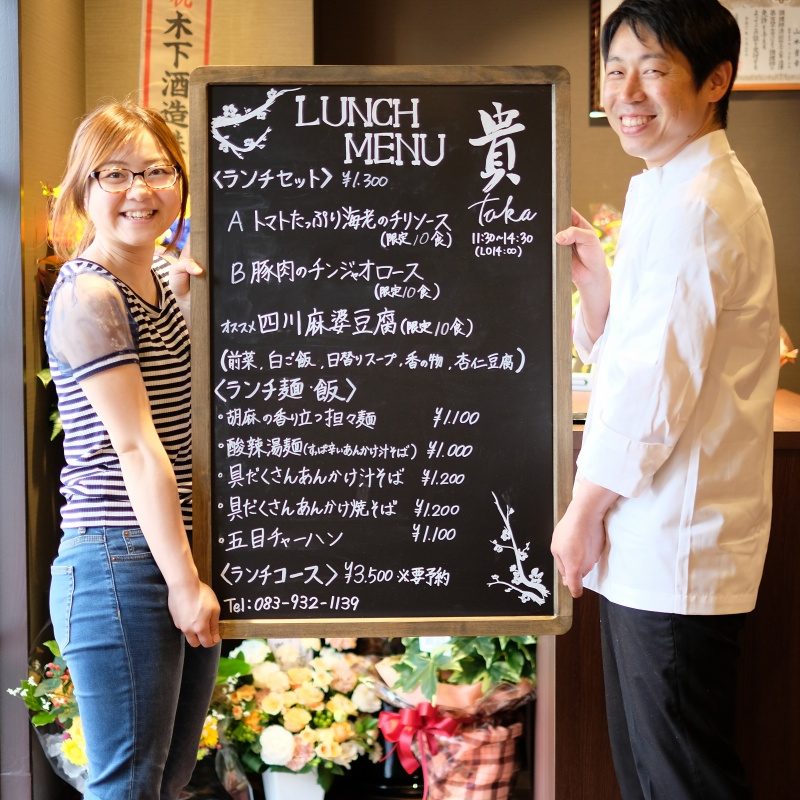 祝
木下酒造
LUNCH
MENU
貴
taka
11:30~14:30
(LO14:00)
〈ランチセット〉 ¥1.300
A トマトたっぷり海老のチリソース
(限定10食)
B 豚肉のチンジャオロース
(限定10食)
オススメ 四川麻婆豆腐(限定10食)
(前菜, 白ご飯, 日替りスープ, 香の物, 杏仁豆腐)
〈ランチ麺・飯〉
・胡麻の香り立つ担々麺 ¥1.100
・酸辣湯麺(すっぱ辛いあんかけ汁そば) ¥1.000
・具だくさんあんかけ汁そば ¥1.200
・具だくさんあんかけ焼そば ¥1.200
・五目チャーハン ¥1.100
〈ランチコース〉 ¥3.500 ※要予約
Tel:083-932-1139